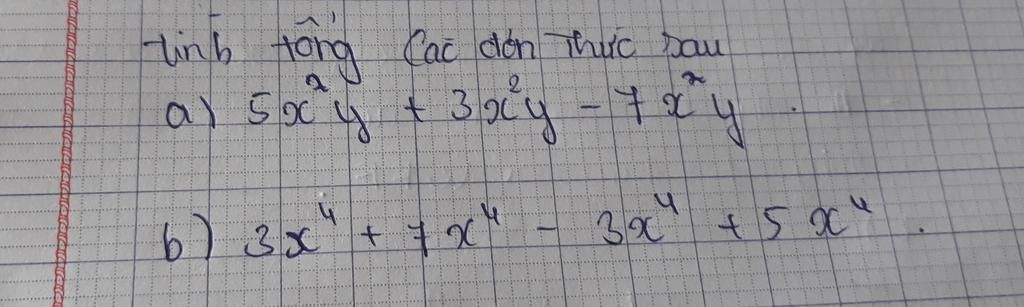 tính tổng các đơn thức sau
a) 5x²y + 3x²y - 7x²y .
b) 3x⁴ + 7x⁴ - 3x⁴ + 5x⁴ .